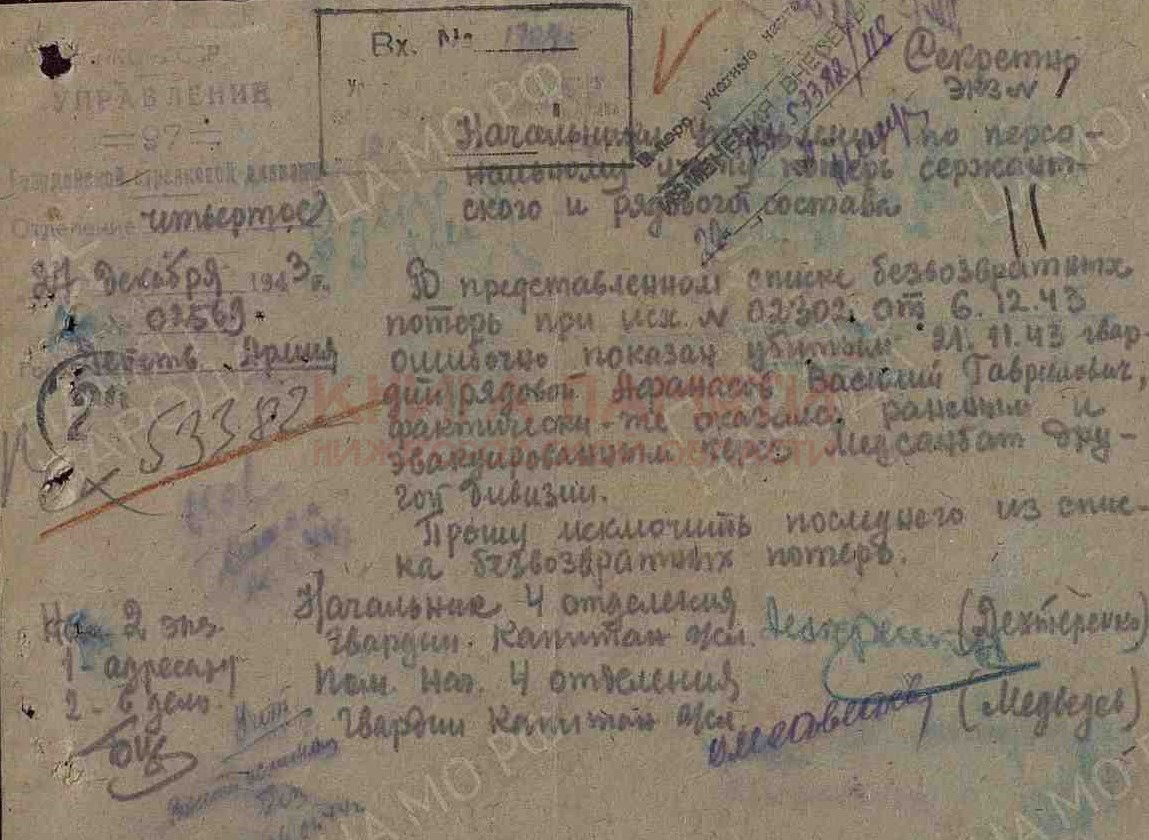 НКО-СССР
УПРАВЛЕНИЕ
= 97 =
Гвардейской стрелковой дивизии
Отделение четвертое
27 Декабря 1943 г.
№ 02569
Действ. Армия
53382
Вх. №
В перс учетные
ИЗМЕНЕНИЯ ВНЕСЕНЫ
53382/118
Секретно
Экз № 1
Начальнику Управления по персо-
нальному учету потерь сержант-
ского и рядового состава
В представленном списке безвозвратных
потерь при исх. № 02302 от 6.12.43
ошибочно показан убитым 21.11.43 гвар-
дии рядовой Афанасов Василий Гаврилович,
фактически-же оказался раненым и
эвакуированным через Медсанбат дру-
гой дивизии.
Прошу исключить последнего из спис-
ка безвозвратных потерь.
Начальник 4 отделения
Гвардии Капитан а/сл. (Дехтеренко)
Пом. Нач. 4 отделения
Гвардии Капитан а/сл. (Медведев)
2 экз.
1 - адресату
2 - в дело.
КНИГА ПАМЯТИ
НИЖЕГОРОДСКОЙ ОБЛАСТИ
ЦА МО РФ